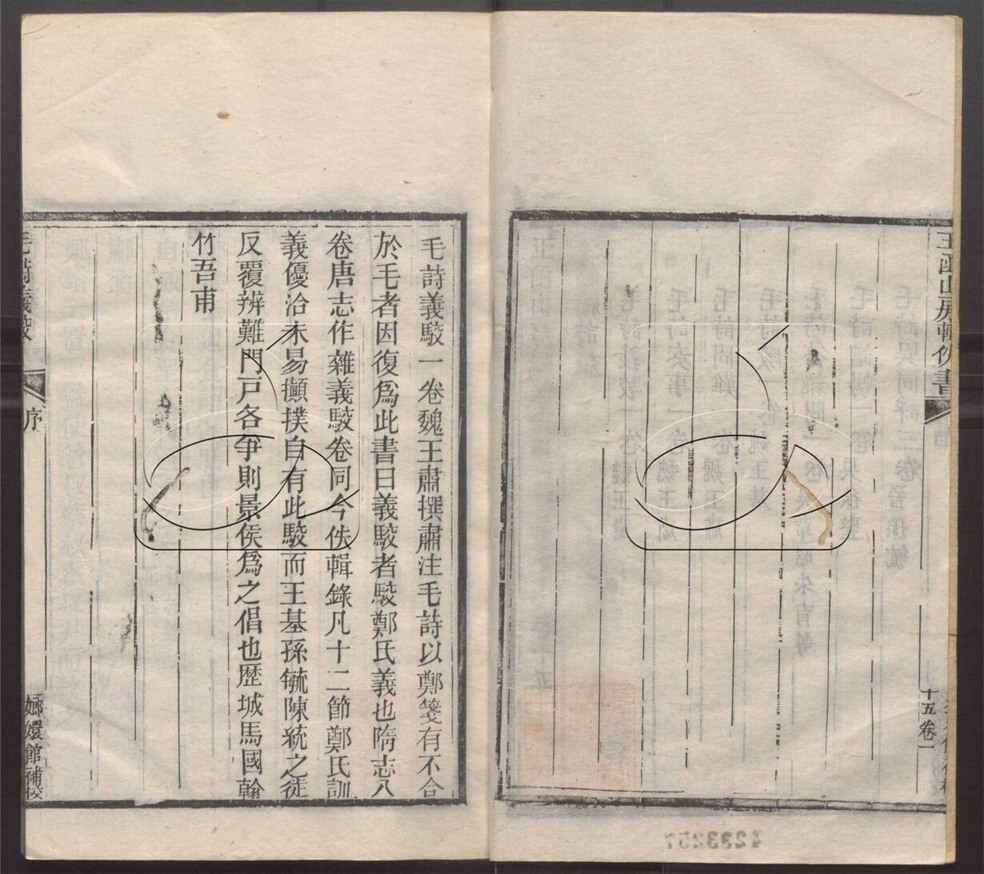 玉函山房輯佚書
十五卷一
毛詩義駮一卷魏王肅撰肅注毛詩以鄭箋有不合
於毛者因復爲此書曰義駮者駮鄭氏義也隋志八
卷唐志作雜義駮卷同今佚輯錄凡十二節鄭氏訓
義優洽未易攧撲自有此駮而王基孫毓陳統之徒
反覆辨難門戸各爭則景侯爲之倡也歴城馬國翰
竹吾甫
毛詩義駮
序
嫏嬛館補校